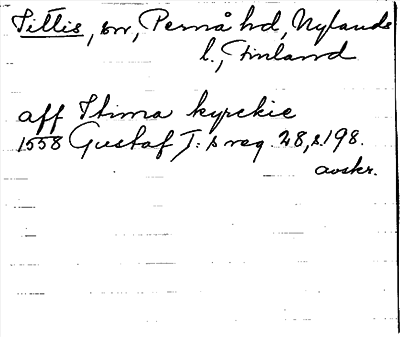 Littis, sn, Pernå hd, Nylands
l., Finland
aff Itima kyrckie
1558 Gustaf I:s reg. 28, s. 198.
avskr.